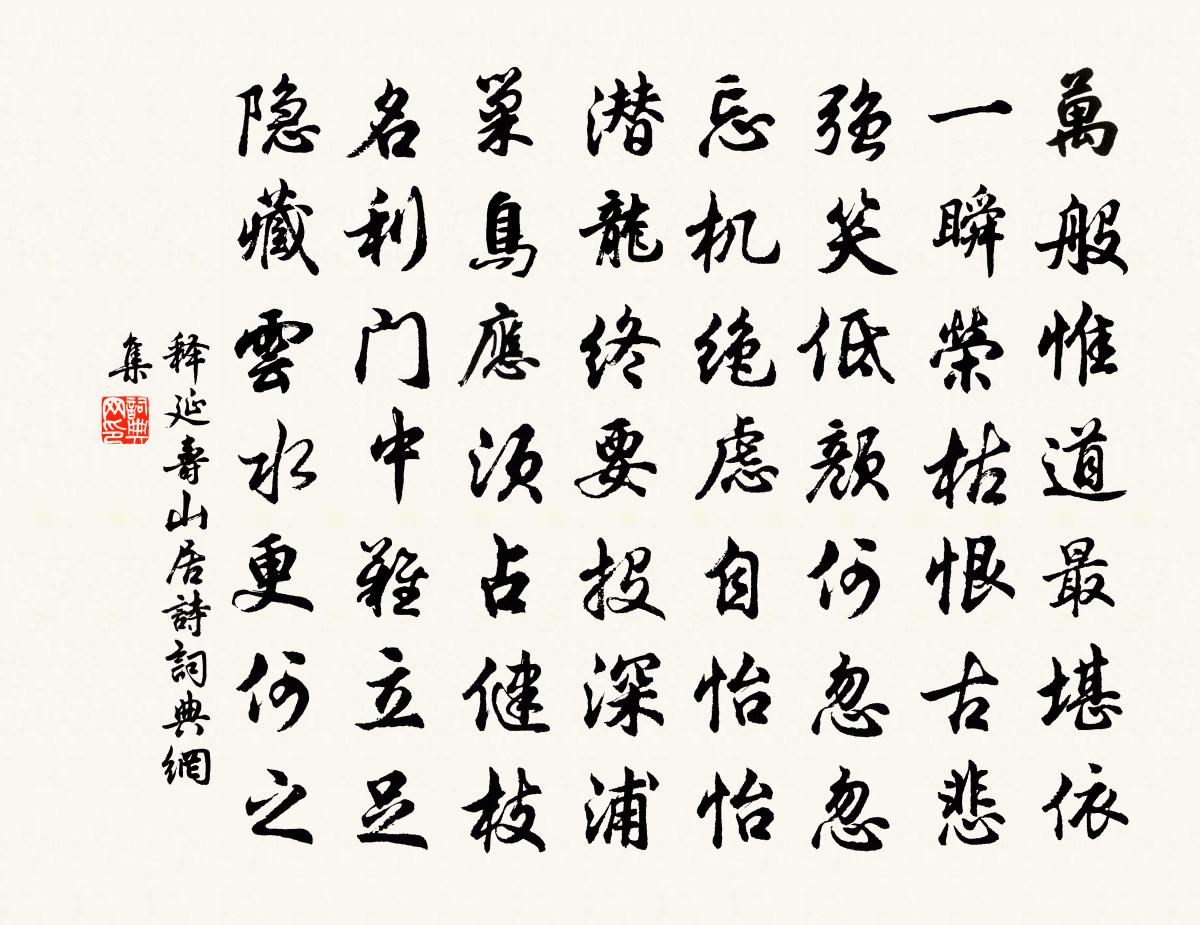 萬般惟道最堪依
一瞬榮枯恨古悲
強笑低顏何忽忽
忘机绝慮自怡怡
潜龍终要投深浦
巢鳥應须占健枝
名利门中難立足
隐藏雲水更何之
释延壽山居詩詞典網
集
詞典
网印